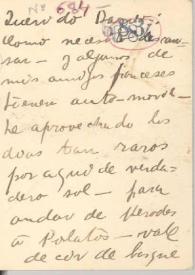 Nº 684
Querido Darío:
Como necesito descan
sar — y algunos de
mis amigos franceses
tienen auto-movil —
he aprovechado los
dias tan raros
por aquí de verda-
dero sol — para
andar de Herodes
á Pilatos — vale
de cir de bosque